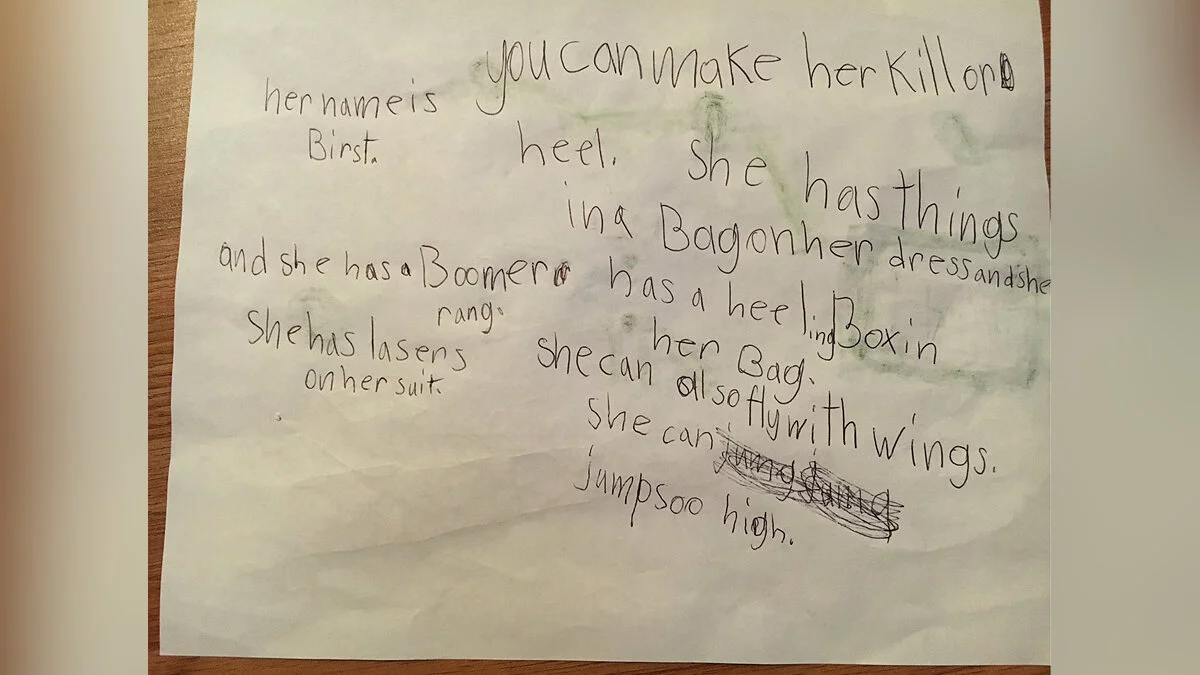 her name is
Birst.
and she has a Boomer
rang.
She has lasers
on her suit.
you can make her Kill or
heel. She has things
in a Bag on her dress and she
has a heeling Box in
her Bag.
She can also fly with wings.
She can
jump soo high.